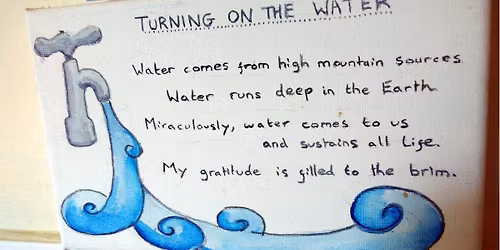 TURNING ON THE WATER
Water comes from high mountain sources
Water runs deep in the Earth
Miraculously, water comes to us
and sustains all life.
My gratitude is filled to the brim.